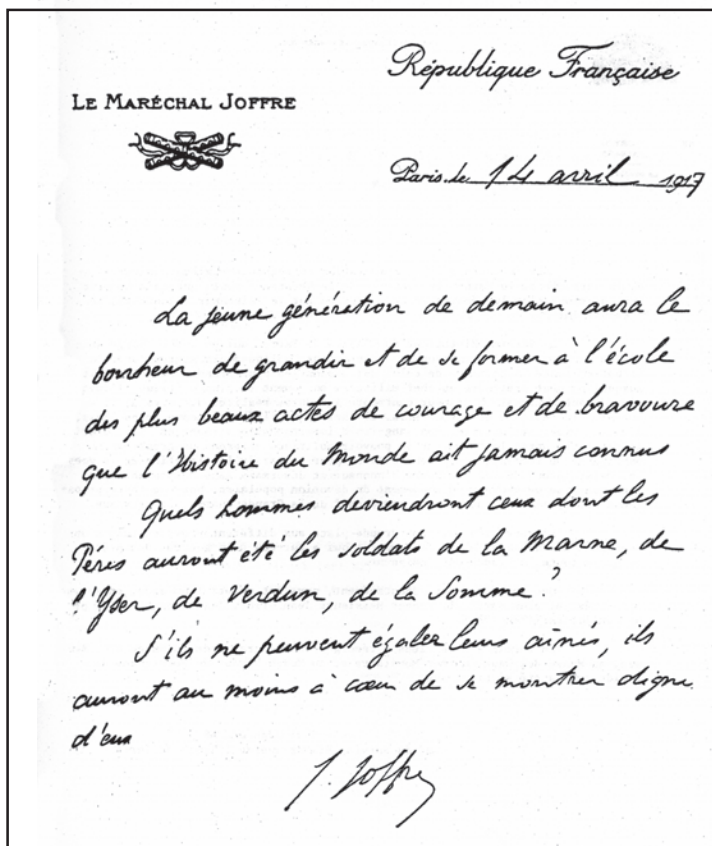 République Française
LE MARÉCHAL JOFFRE
Paris, le 14 avril 1917
La jeune génération de demain aura le
bonheur de grandir et de se former à l'école
des plus beaux actes de courage et de bravoure
que l'Histoire du Monde ait jamais connus
Quels hommes deviendront ceux dont les
Pères auront été les soldats de la Marne, de
l'Yser, de Verdun, de la Somme ?
S'ils ne peuvent égaler leurs aînés, ils
auront au moins à cœur de se montrer digne
d'eux
J. Joffre